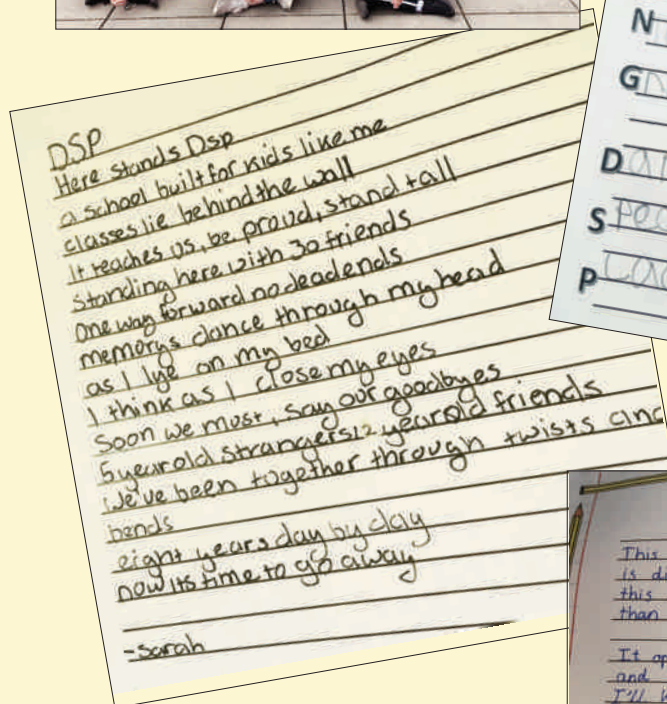 DSP
Here stands Dsp
a school built for kids like me
classes lie behind the wall
It teaches us, be proud, stand tall
standing here with 30 friends
one way forward no deadends
memorys dance through my head
as I lye on my bed
I think as I close my eyes
Soon we must, say our goodbyes
5 year old strangers 12 year old friends
We've been together through twists and
bends
eight years day by day
now its time to go away
-sarah
N
G
D
S
P
This
is di
this
than
It ap
and
I'll